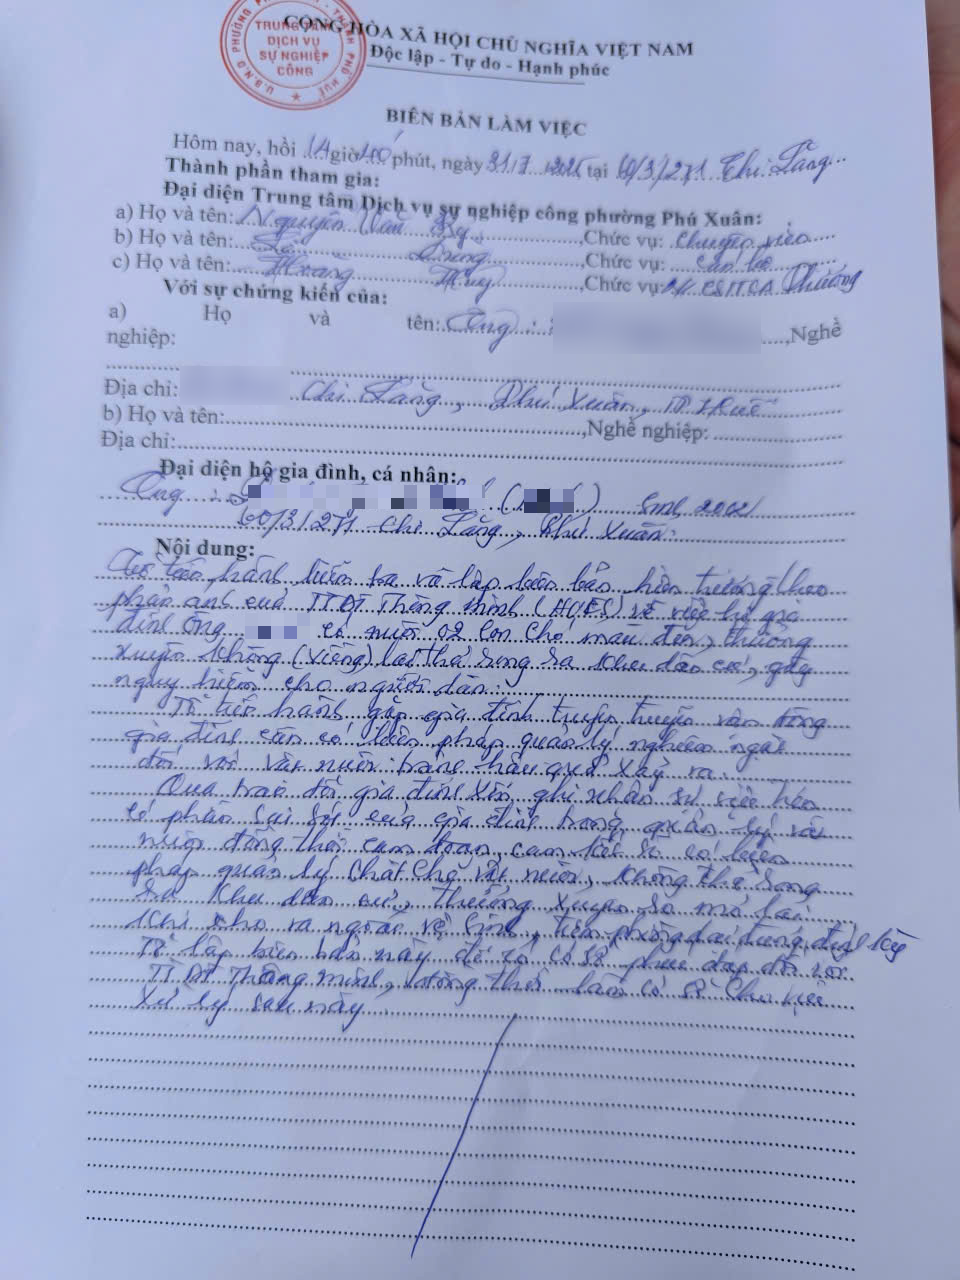 U.B.N.D PHƯỜNG PHÚ XUÂN - THÀNH PHỐ HUẾ
TRUNG TÂM
DỊCH VỤ
SỰ NGHIỆP
CÔNG
CỘNG HÒA XÃ HỘI CHỦ NGHĨA VIỆT NAM
Độc lập - Tự do - Hạnh phúc
BIÊN BẢN LÀM VIỆC
Hôm nay, hồi 14 giờ 40 phút, ngày 31/7/2025 tại 60/3/271 Chi Lăng
Thành phần tham gia:
Đại diện Trung tâm Dịch vụ sự nghiệp công phường Phú Xuân:
a) Họ và tên: Nguyễn Văn ,Chức vụ: Chuyên viên
b) Họ và tên: Lê Dũng ,Chức vụ: Cán bộ
c) Họ và tên: Hoàng Thuý ,Chức vụ: Phường
Với sự chứng kiến của:
a) Họ và tên: Ông : ,Nghề
nghiệp:
Địa chỉ: Chi Lăng, Phú Xuân, TP Huế
b) Họ và tên: ,Nghề nghiệp:
Địa chỉ:
Đại diện hộ gia đình, cá nhân:
Ông : ( ) 2002
60/3/271 Chi Lăng, Phú Xuân.
Nội dung:
Tổ tiến hành kiểm tra và lập biên bản hiện trường theo
phản ánh của TTĐT Thông minh (HUES) về việc hộ gia
đình Ông có nuôi 02 con chó màu đen, thường
xuyên không (xiềng) lại thả rông ra khu dân cư, gây
nguy hiểm cho người dân.
Tổ tiến hành gặp gia đình tuyên truyền vận động
gia đình cần có biện pháp quản lý nghiêm ngặt
đối với vật nuôi tránh hậu quả xảy ra.
Qua trao đổi gia đình xin ghi nhận sự việc trên
có phần sai sót của gia đình trong quản lý vật
nuôi đồng thời cam đoan, cam kết sẽ có biện
pháp quản lý chặt chẽ vật nuôi, không thả rông
ra khu dân cư, thường xuyên rọ mõ lại
khi cho ra ngoài vệ sinh, tiêm phòng dại đúng định kỳ
Tổ lập biên bản này để có cơ sở phúc đáp đối với
TTĐT Thông minh, đồng thời làm cơ sở cho việc
xử lý sau này.